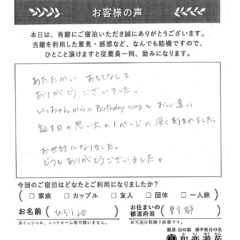 お客様の声
本日は、当館にご宿泊いただき誠にありがとうございます。
当館を利用した意見・感想など、なんでも結構ですので、
ひとこと頂けますと従業員一同、励みになります。
あたたかい おもてなしを
ありがとうございました。
いっちゃんからのBirthday songと お心遣い
の思い出の1ページに深く刻まれました。
お世話になりました。
どうもありがとうございました。
今回のご宿泊はどなたとご利用になりましたか?
家族 ・ カップル ・ 友人 ・ 団体 ・ 一人旅
お名前
お住まいの都道府県 東京都
※イニシャル、ニックネーム等で問題がないお名前でお書きください。